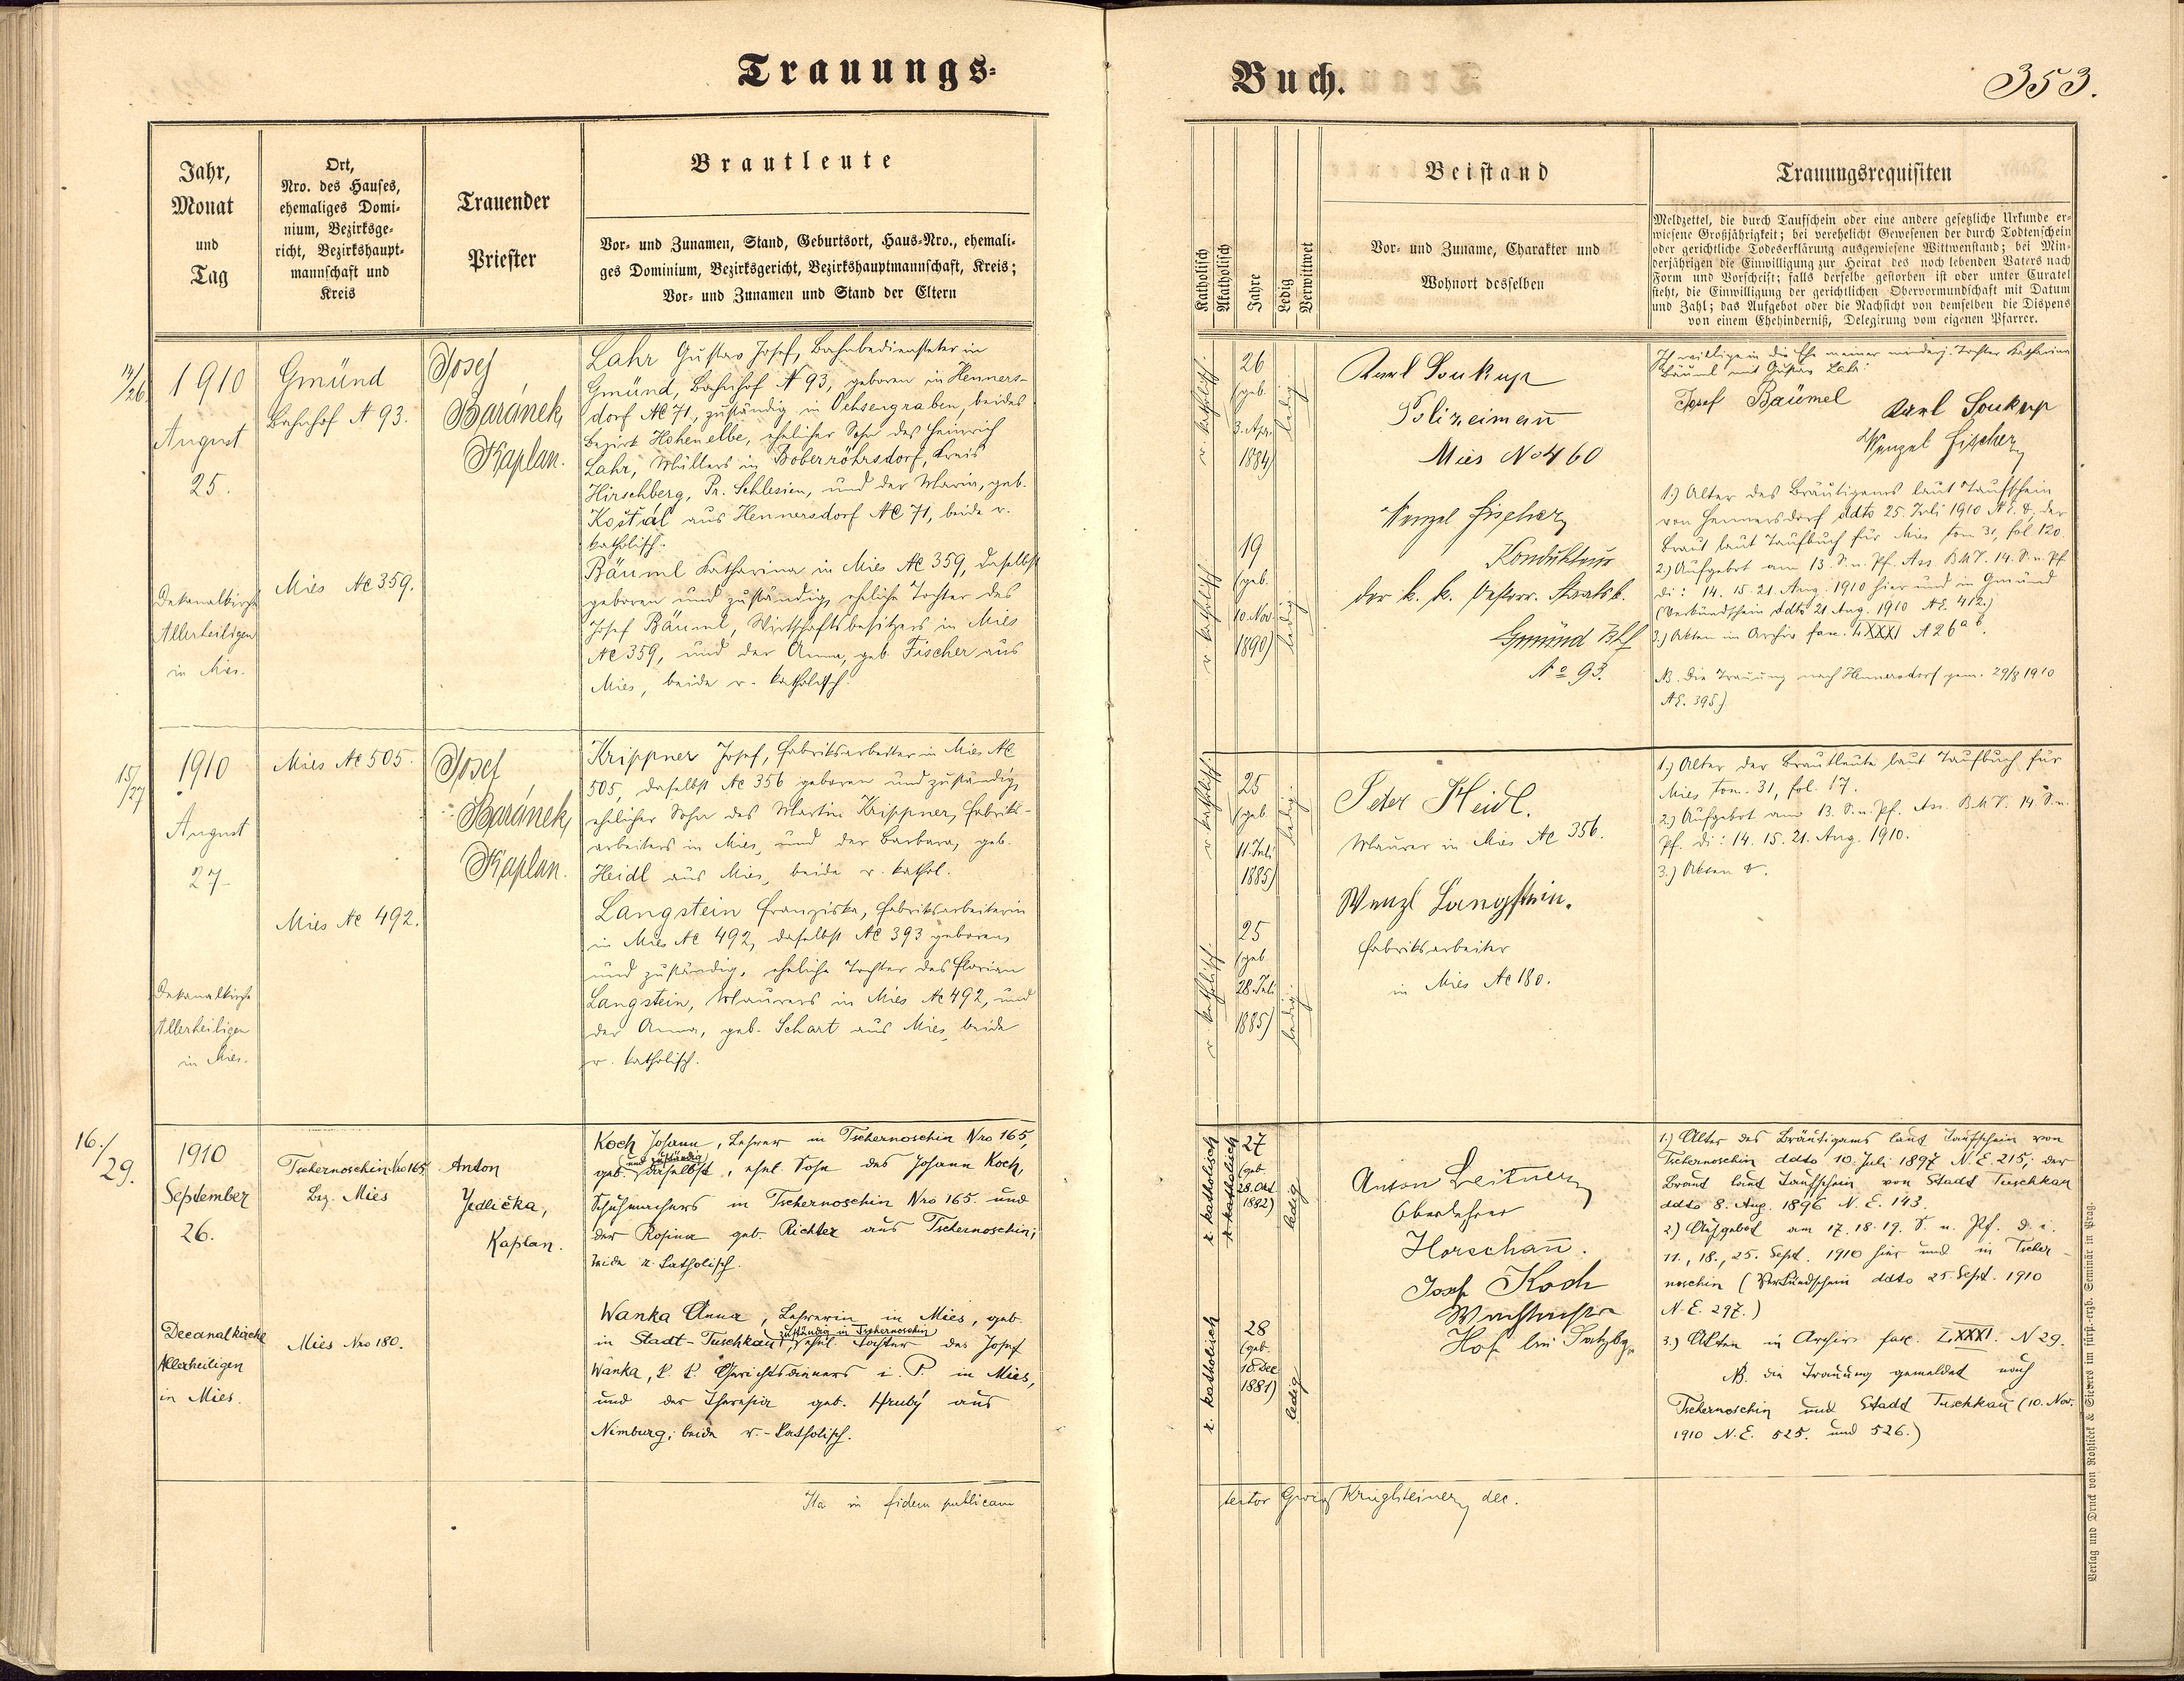 Trauungs-
Jahr,
Monat
und
Tag
Ort,
Nro. des Hauses,
ehemaliges Domi-
nium, Bezirksge-
richt, Bezirkshaupt-
mannschaft und
Kreis
Trauender
Priester
Brautleute
Vor- und Zunamen, Stand, Geburtsort, Haus-Nro., ehemali-
ges Dominium, Bezirksgericht, Bezirkshauptmannschaft, Kreis;
Vor- und Zunamen und Stand der Eltern
14/26
1910
August
25.
Dekanalkirche
Allerheiligen
in Mies.
Gmünd
Bahnhof N 93.
Mies NC 359.
Josef
Baránek,
Kaplan.
Lahr Gustav Josef, Bahnbediensteter in
Gmünd, Bahnhof N 93, geboren in Henners-
dorf NC 71, zuständig in Ochsengraben, beides
Bezirk Hohenelbe, ehelicher Sohn des Heinrich
Lahr, Müllers in Boberröhrsdorf, Kreis
Hirschberg, Pr. Schlesien, und der Maria, geb.
Koštál aus Hennersdorf NC 71, beide r.
katholisch.
Bäuml Katharina in Mies NC 359, daselbst
geboren und zuständig, eheliche Tochter des
Josef Bäuml, Wirtschaftsbesitzers in Mies
NC 359, und der Anna, geb. Fischer aus
Mies, beide r. katholisch.
15/27
1910
August
27.
Dekanalkirche
Allerheiligen
in Mies.
Mies NC 505.
Mies NC 492.
Josef
Baránek,
Kaplan.
Krippner Josef, Fabriksarbeiter in Mies NC
505, daselbst NC 356 geboren und zuständig,
ehelicher Sohn des Martin Krippner, Fabriks-
arbeiters in Mies, und der Barbara, geb.
Heidl aus Mies, beide r. kathol.
Langstein Franziska, Fabriksarbeiterin
in Mies NC 492, daselbst NC 393 geboren
und zuständig, eheliche Tochter des Florian
Langstein, Maurers in Mies NC 492, und
der Anna, geb. Schart aus Mies, beide
r. katholisch.
16./29.
1910
September
26.
Decanalkirche
Allerheiligen
in Mies.
Tschernoschin Nro 165
Bez. Mies
Mies Nro 180.
Anton
Jedlička,
Kaplan.
Koch Johann, Lehrer in Tschernoschin Nro 165,
geb. (und zuständig) daselbst, ehel. Sohn des Johann Koch,
Schuhmachers in Tschernoschin Nro 165. und
der Rosina geb. Richter aus Tschernoschin;
beide r. katholisch.
Wanka Anna, Lehrerin in Mies, geb.
in Stadt-Tuschkau, zuständig in Tschernoschin, ehel. Tochter des Josef
Wanka, k. k. Gerichtsdieners i. P. in Mies,
und der Theresia geb. Hrubý aus
Nimburg; beide r.-katholisch.
Ita in fidem publicam
Buch.
353.
Katholisch
Akatholisch
Jahre
Ledig
Verwittwet
Beistand
Vor- und Zuname, Charakter und
Wohnort desselben
Trauungsrequisiten
Meldzettel, die durch Taufschein oder eine andere gesetzliche Urkunde er-
wiesene Großjährigkeit; bei verehelicht Gewesenen der durch Todtenschein
oder gerichtliche Todeserklärung ausgewiesene Wittwenstand; bei Min-
derjährigen die Einwilligung zur Heirat des noch lebenden Vaters nach
Form und Vorschrift; falls derselbe gestorben ist oder unter Curatel
steht, die Einwilligung der gerichtlichen Obervormundschaft mit Datum
und Zahl; das Aufgebot oder die Nachsicht von demselben die Dispens
von einem Ehehinderniß, Delegirung vom eigenen Pfarrer.
r. katholisch.
26
(geb.
3. Apr.
1884)
ledig.
r. katholisch.
19
(geb.
10. Nov.
1890)
ledig.
Karl Soukup
Polizeimann
Mies No 460
Wenzel Fischer
Kondukteur
der k. k. österr. Staatsb.
Gmünd Bhf
No 93.
Ich willige in die Ehe meiner minderj. Tochter Katharina
Bäuml mit Gustav Lahr:
Josef Bäumel
Karl Soukup
Wenzel Fischer
1.) Alter des Bräutigams laut Taufschein
von Hennersdorf ddto 25. Juli 1910 N.E. &, der
Braut laut Taufbuch für Mies tom. 31, fol. 120.
2.) Aufgebot am 13. S. n. Pf. Ass. B.M.V. 14. S. n. Pf.
di: 14. 15. 21. Aug. 1910 hier und in Gmünd
(Verkündschein ddto 21. Aug. 1910 N.E. 412.)
3.) Akten im Archiv fasc. LXXXI N 26 a b.
NB. Die Trauung nach Hennersdorf gem. 29/8 1910
N.E. 395.)
r. katholisch.
25
(geb
11. Juli
1885)
ledig.
r. katholisch.
25
(geb
28. Juli
1885)
ledig.
Peter Heidl.
Maurer in Mies NC 356.
Wenzl Langstein.
Fabriksarbeiter
in Mies NC 180.
1.) Alter der Brautleute laut Taufbuch für
Mies tom. 31, fol. 17.
2.) Aufgebot am 13. S. n. Pf. Ass. B.M.V. 14 S. n.
Pf. di: 14. 15. 21. Aug. 1910.
3.) Akten &.
r. katholisch
r. katholisch
27
(geb.
28. Okt.
1882)
ledig
r. katholisch
28
(geb.
10. Dec
1881)
ledig
Anton Leitner
Oberlehrer
Horschau.
Josef Koch
Wachtmeister
Hof bei
1.) Alter des Bräutigams laut Taufschein von
Tschernoschin ddto 10. Juli 1897 N.E. 215; der
Braut laut Taufschein von Stadt Tuschkau
ddto 8. Aug. 1896 N.E. 143.
2.) Aufgebot am 17. 18. 19. S. n. Pf. d. i.
11., 18., 25. Sept. 1910 hier und in Tscher-
noschin (Verkündschein ddto 25. Sept. 1910
N.E. 297.)
3.) Akten in Archiv fasc. LXXXI. N 29.
NB. die Trauung gemeldet nach
Tschernoschin und Stadt Tuschkau (10. Nov.
1910 N.E. 525. und 526.)
testor Georg Krüglsteiner, dec.
Verlag und Druck von Rohliček & Sievers im fürst.-erzb. Seminär in Prag.